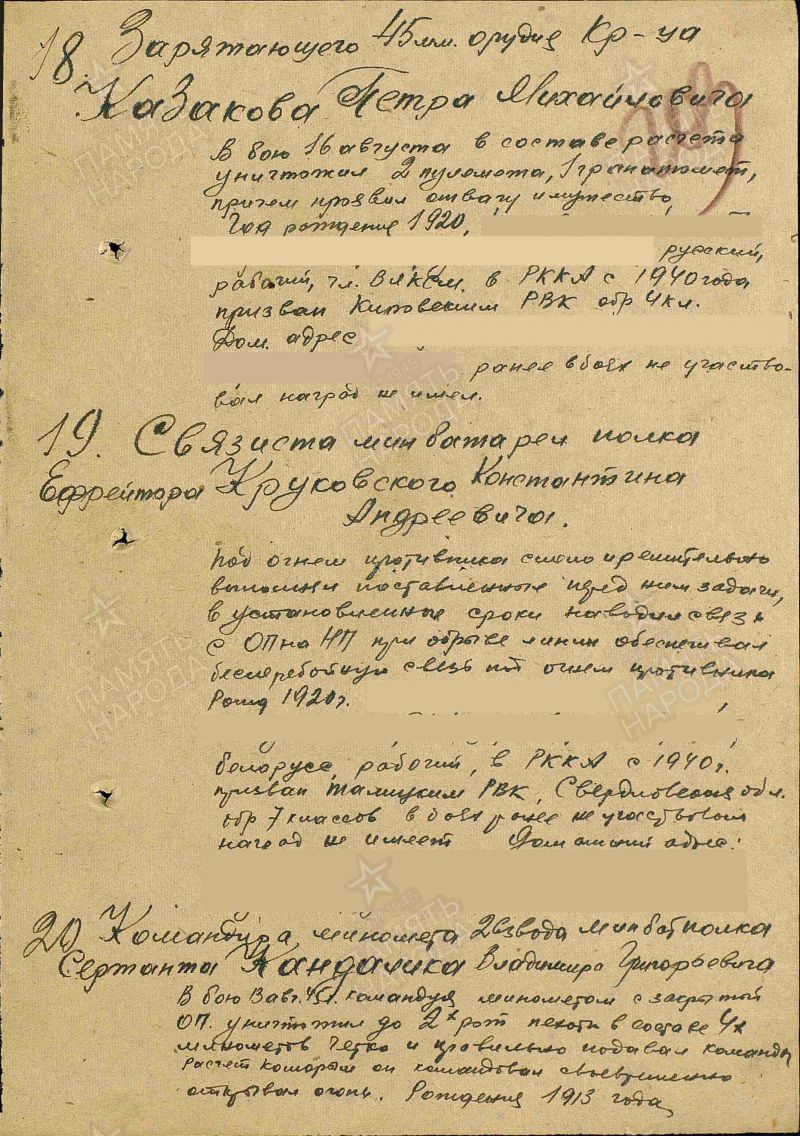 18. Зарятающего 45 мм. орудия Кр-ца
Казакова Петра Михайловича
В бою 16 августа в составе расчета
уничтожил 2 пулемета, 1 гранатомет,
причем проявил отвагу и мужество
Год рождения 1920,
русский,
рабочий, чл. ВЛКСМ, в РККА с 1940 года
призван Кировским РВК обр 4 кл.
Дом. адрес
ранее в боях не участво-
вал наград не имел.
19. Связиста минбатареи полка
Ефрейтора Круковского Константина
Андреевича.
Под огнем противника смело и решительно
выполнял поставленные перед ним задачи,
в установленные сроки наводил связь
с ОП на НП при обрыве линии обеспечивал
бесперебойную связь под огнем противника
Рожд 1920 г.
белорусс, рабочий, в РККА с 1940 г.
призван РВК, Свердловская обл.
обр 7 классов в боях ранее не участвовал
наград не имеет Домашний адрес:
20 Командира миномета 2 взвода минбат полка
Сержанта Кандалика Владимира Григорьевича
В бою 3 авг. командуя минометом с закрытой
ОП. уничтожил до 2х рот пехоты в составе 4х
минометов четко и правильно подавал команды
расчет которым он командовал своевременно
открывал огонь. Рождения 1913 года,
ПАМЯТЬ
НАРОДА